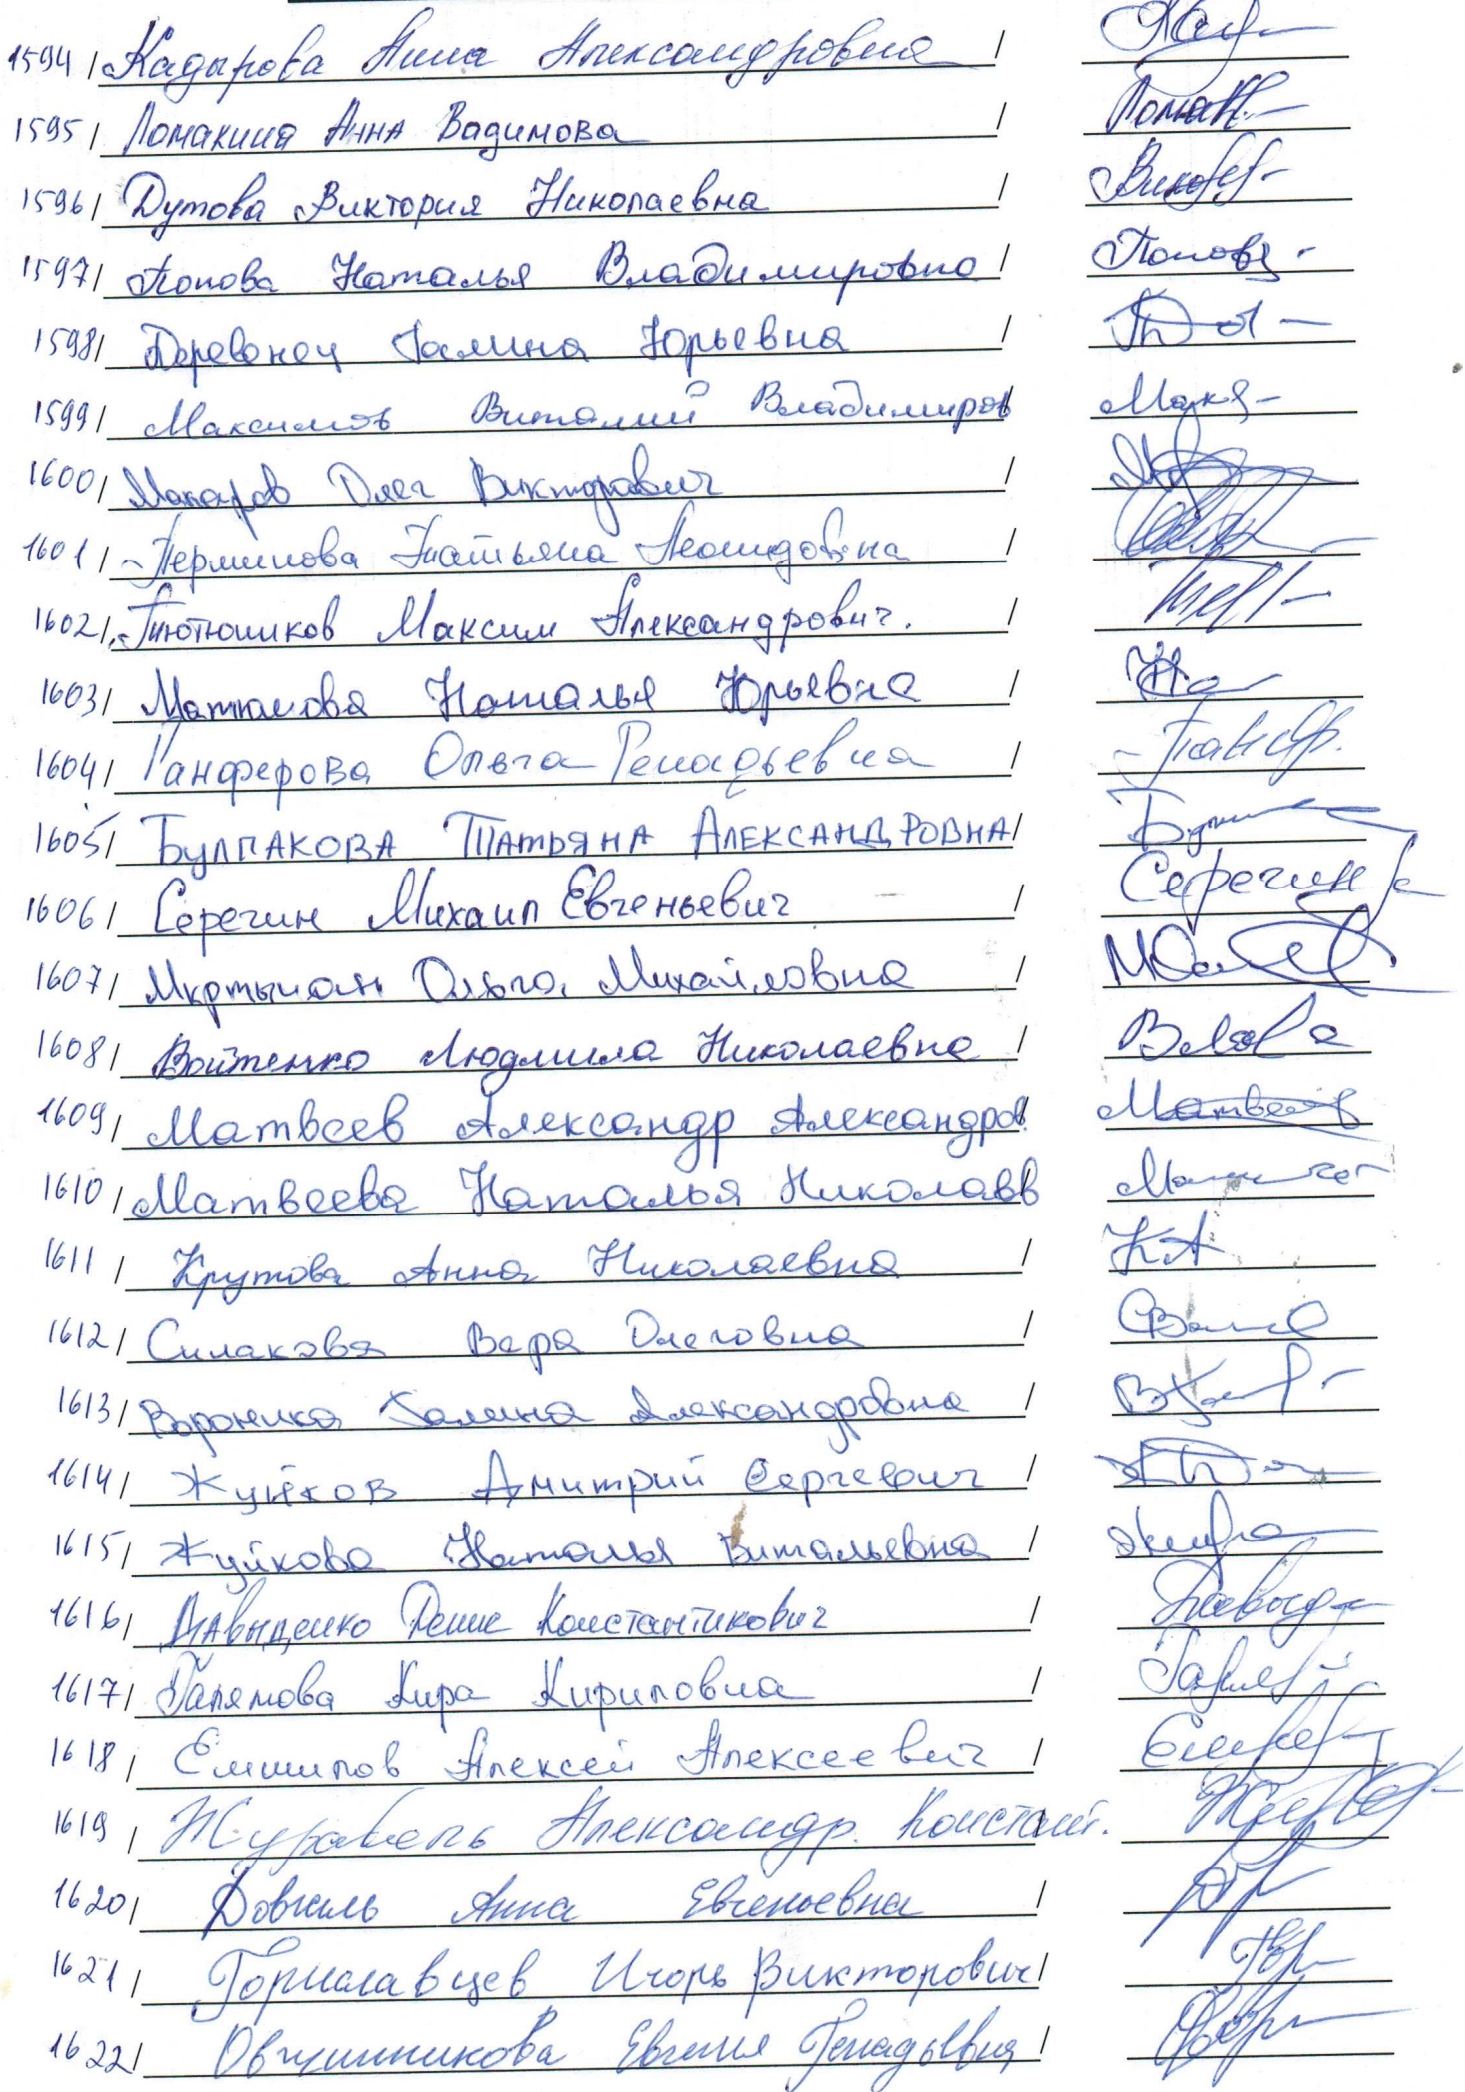 1594/ Кадырова Анна Александровна /
1595/ Ломакина Анна Вадимова /Ломак
1596/ Дутова Виктория Николаевна /
1597/ Попова Наталья Владимировна / Попова
1598/ Деревенец Галина Юрьевна /
1599/ Максимов Виталий Владимиров /
1600/ Макаров Олег Викторович /
1601/ Перминова Татьяна Леонидовна /
1602/ Тютюников Максим Александрович. /
1603/ Матюхова Наталья Юрьевна /
1604/ Ганферова Ольга Генадьевна /
1605/ Булгакова Татьяна Александровна/
1606/ Серегин Михаил Евгеньевич / Серегин
1607/ Мкртычан Ольга Михайловна /
1608/ Войтенко Людмила Николаевна /
1609/ Матвеев Александр Александров / Матвеев
1610/ Матвеева Наталья Николаев
1611/ Крутова Анна Николаевна / КА
1612/ Силакова Вера Олеговна /
1613/ Воронина Галина Александровна /
1614/ Жуйков Дмитрий Сергеевич /
1615/ Жуйкова Наталья Витальевна /
1616/ Давыденко Денис Константинович / Давыд
1617/ Галямова Кира Кирилловна /
1618/ Алексей Алексеевич /
1619/ Журавель Александр. Констант.
1620/ Довгаль Анна Евгеньевна /
1621/ Гориславцев Игорь Викторович/
1622/ Овчинникова Евгения Генадьевна /